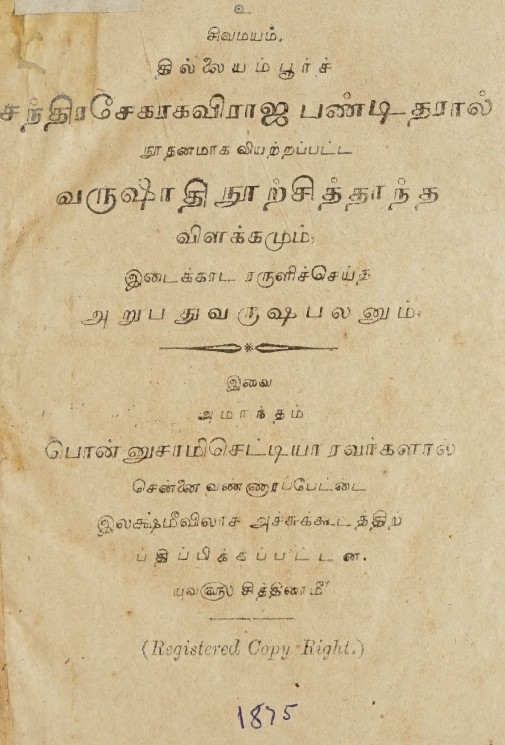 உ
சிவமயம்.
தில்லையம்பூர்ச்
சந்திரசேகரகவிராஜ பண்டிதரால்
நூதனமாக வியற்றப்பட்ட
வருஷாதி நூற்சித்தாந்த
விளக்கமும்,
இடைக்காட ரருளிச்செய்த
அறுபதுவருஷபலனும்.
இவை
அமாந்தம்
பொன்னுசாமிசெட்டியா ரவர்களால்
சென்னை வண்ணாரப்பேட்டை
இலக்ஷ்மீவிலாச அச்சுக்கூடத்திற்
பதிப்பிக்கப்பட்டன.
யுவ௵ சித்திரைமீ
(Registered Copy Right.)
1875